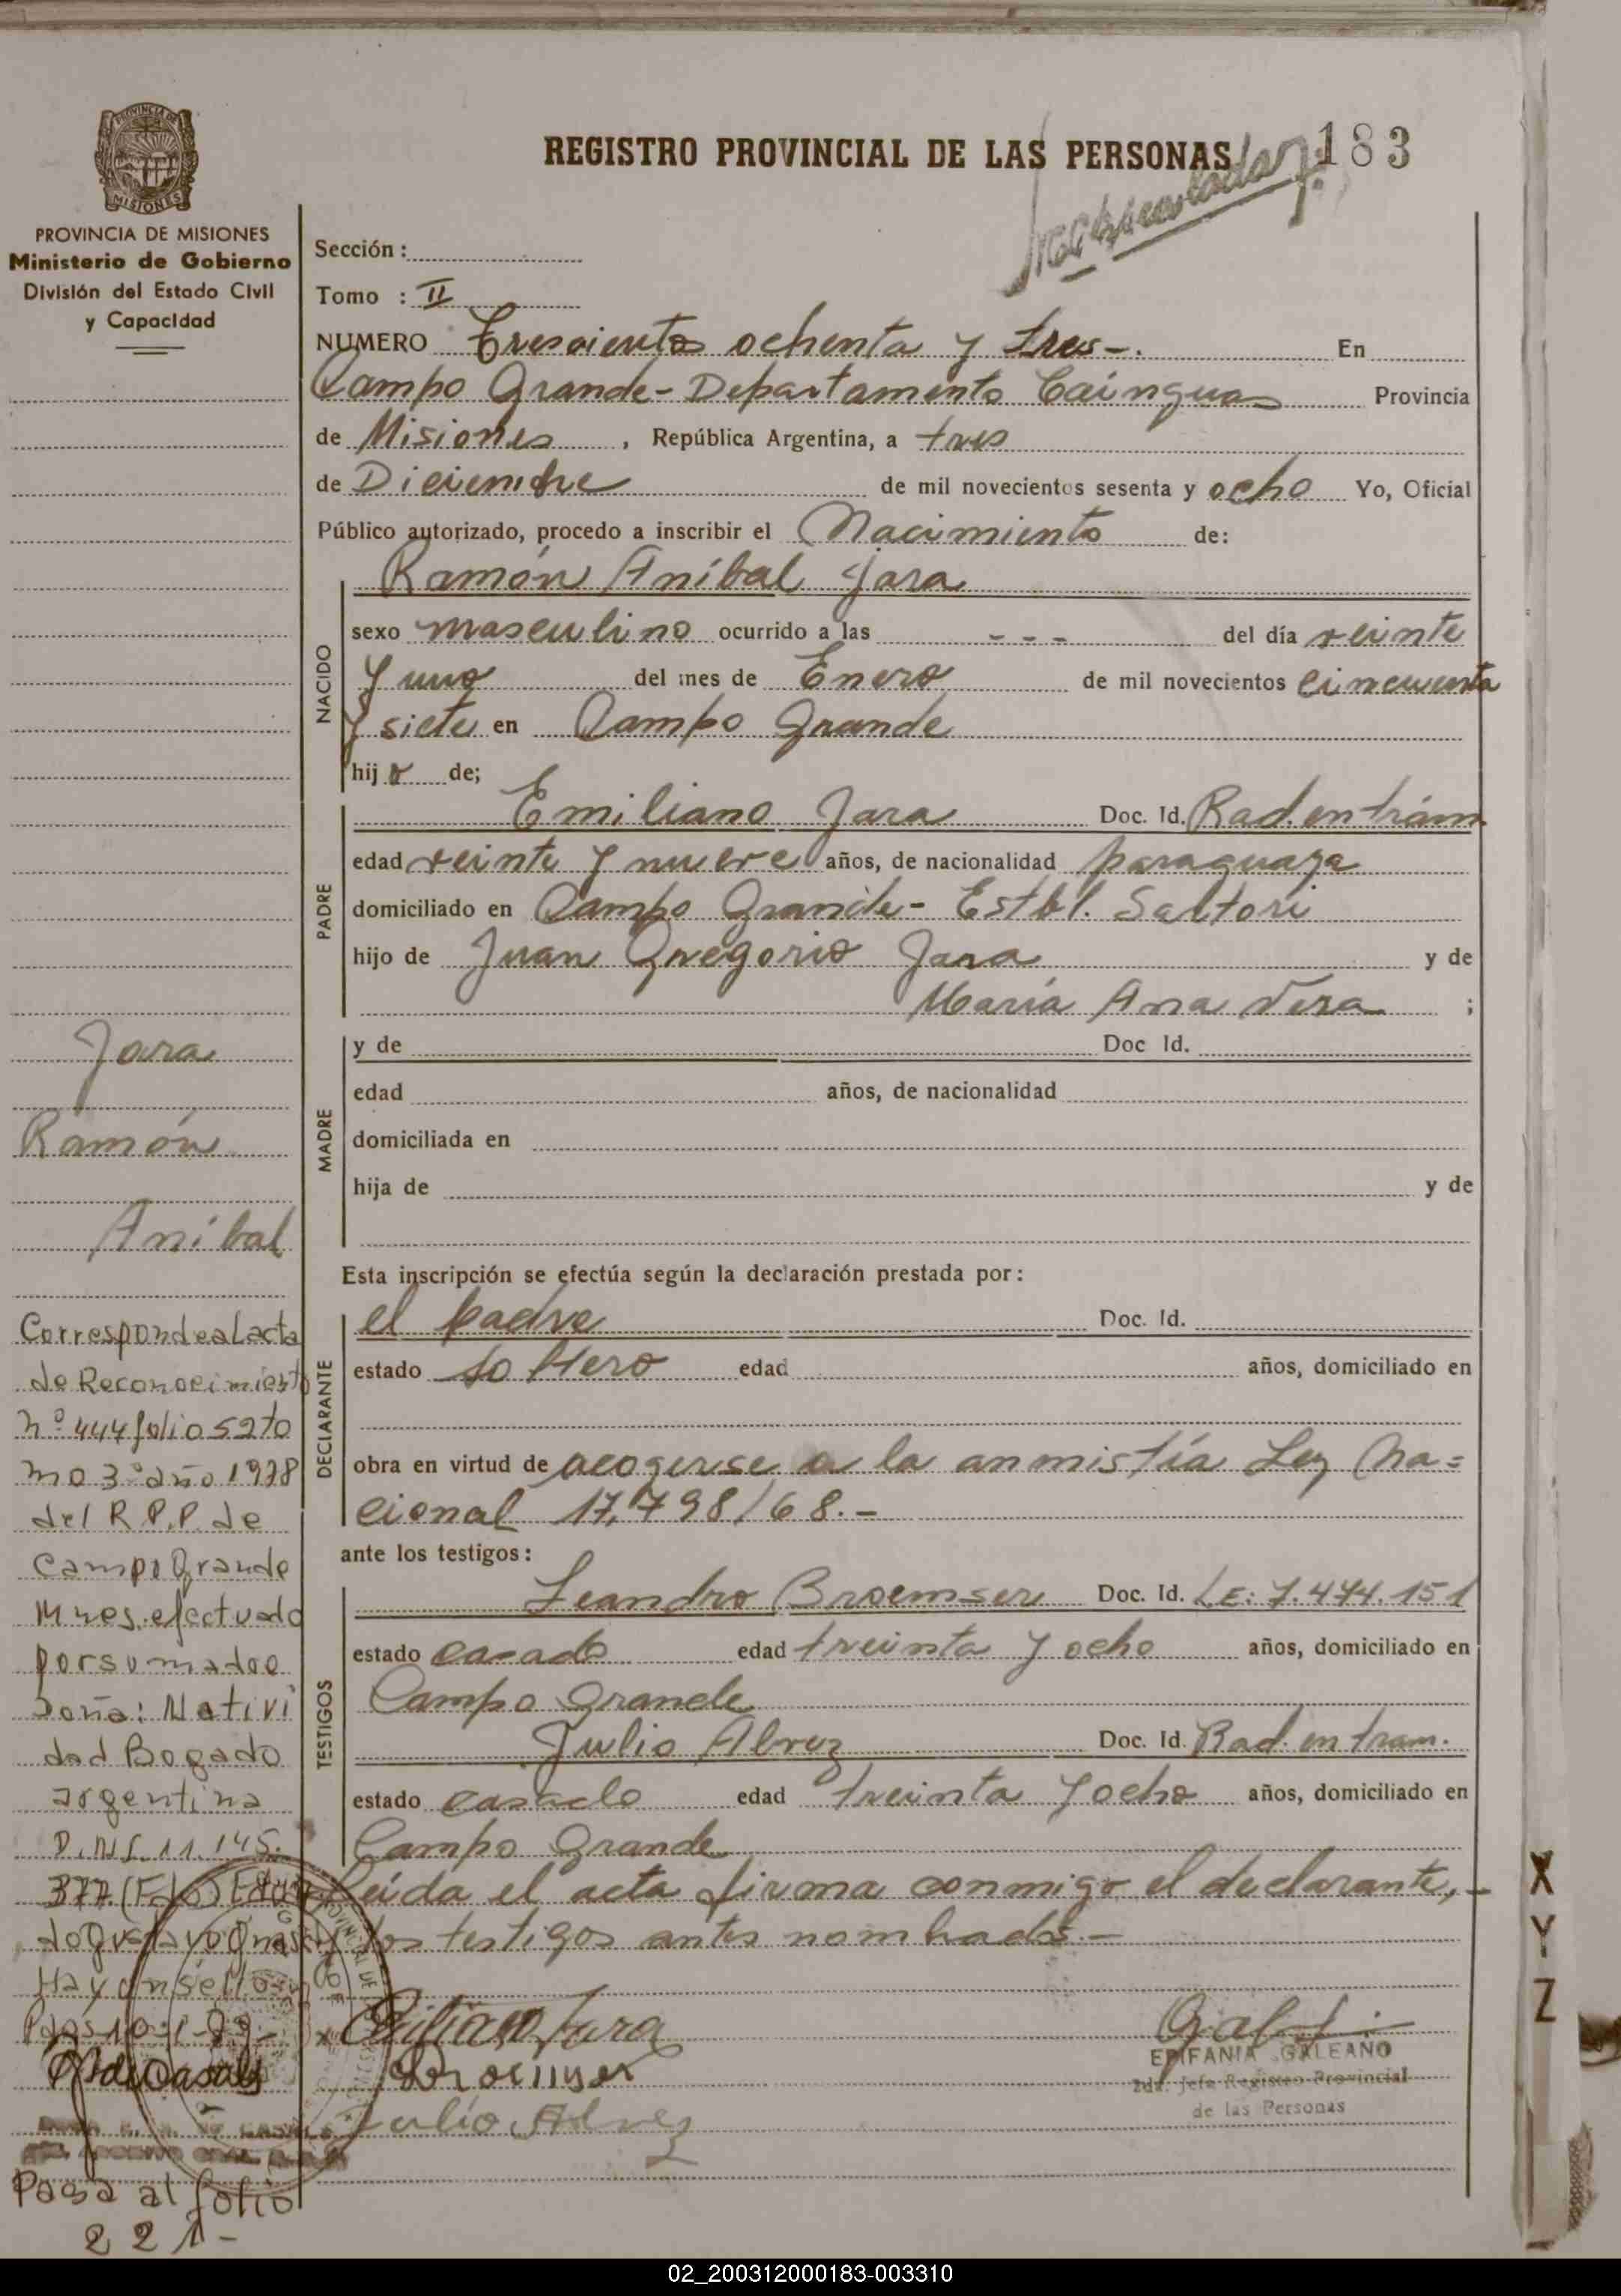 REGISTRO PROVINCIAL DE LAS PERSONAS 183
PROVINCIA DE
MISIONES
PROVINCIA DE MISIONES
Ministerio de Gobierno
División del Estado Civil
y Capacidad
Sección :
Tomo : II
NUMERO Trescientos ochenta y tres-. En
Campo Grande - Departamento Cainguas Provincia
de Misiones , República Argentina, a tres
de Diciembre de mil novecientos sesenta y ocho Yo, Oficial
Público autorizado, procedo a inscribir el Nacimiento de:
Ramón Aníbal Jara
NACIDO
sexo masculino ocurrido a las - - - del día veinte
y uno del mes de Enero de mil novecientos cincuenta
y siete en Campo Grande
hijo de;
PADRE
Emiliano Jara Doc. Id. Rad. en trám.
edad veinte y nueve años, de nacionalidad paraguaya
domiciliado en Campo Grande - Estbl. Saltori
hijo de Juan Gregorio Jara y de
María Ana Vera ;
MADRE
y de Doc Id.
edad años, de nacionalidad
domiciliada en
hija de y de
Esta inscripción se efectúa según la declaración prestada por :
DECLARANTE
el padre Doc. Id.
estado soltero edad años, domiciliado en
obra en virtud de acogerse a la anmistía Ley Na=
cional 17.798/68.-
ante los testigos :
TESTIGOS
Leandro Broemser Doc. Id. LE: 7.474.151
estado casado edad treinta y ocho años, domiciliado en
Campo Grande
Julio Alvez Doc. Id. Rad. en tram.
estado casado edad treinta y ocho años, domiciliado en
Campo Grande
Leída el acta firma conmigo el declarante,-
y los testigos antes nombrados.-
Emiliano Jara
Broemser
Julio Alvez
EPIFANIA GALEANO
2da. Jefe Registro Provincial
de las Personas
Jara
Ramón
Aníbal
Corresponde al acta
de Reconocimiento
nº 444 folio 52 to
mo 3º año 1978
del R.P.P. de
Campo Grande
Mnes. efectuado
por su madre
Doña: Nativi
dad Bogado
argentina
D.N.I. 11.145.
377. (Fdo)
Hay un sello
Pasa al folio
221-
X
Y
Z
02_200312000183-003310